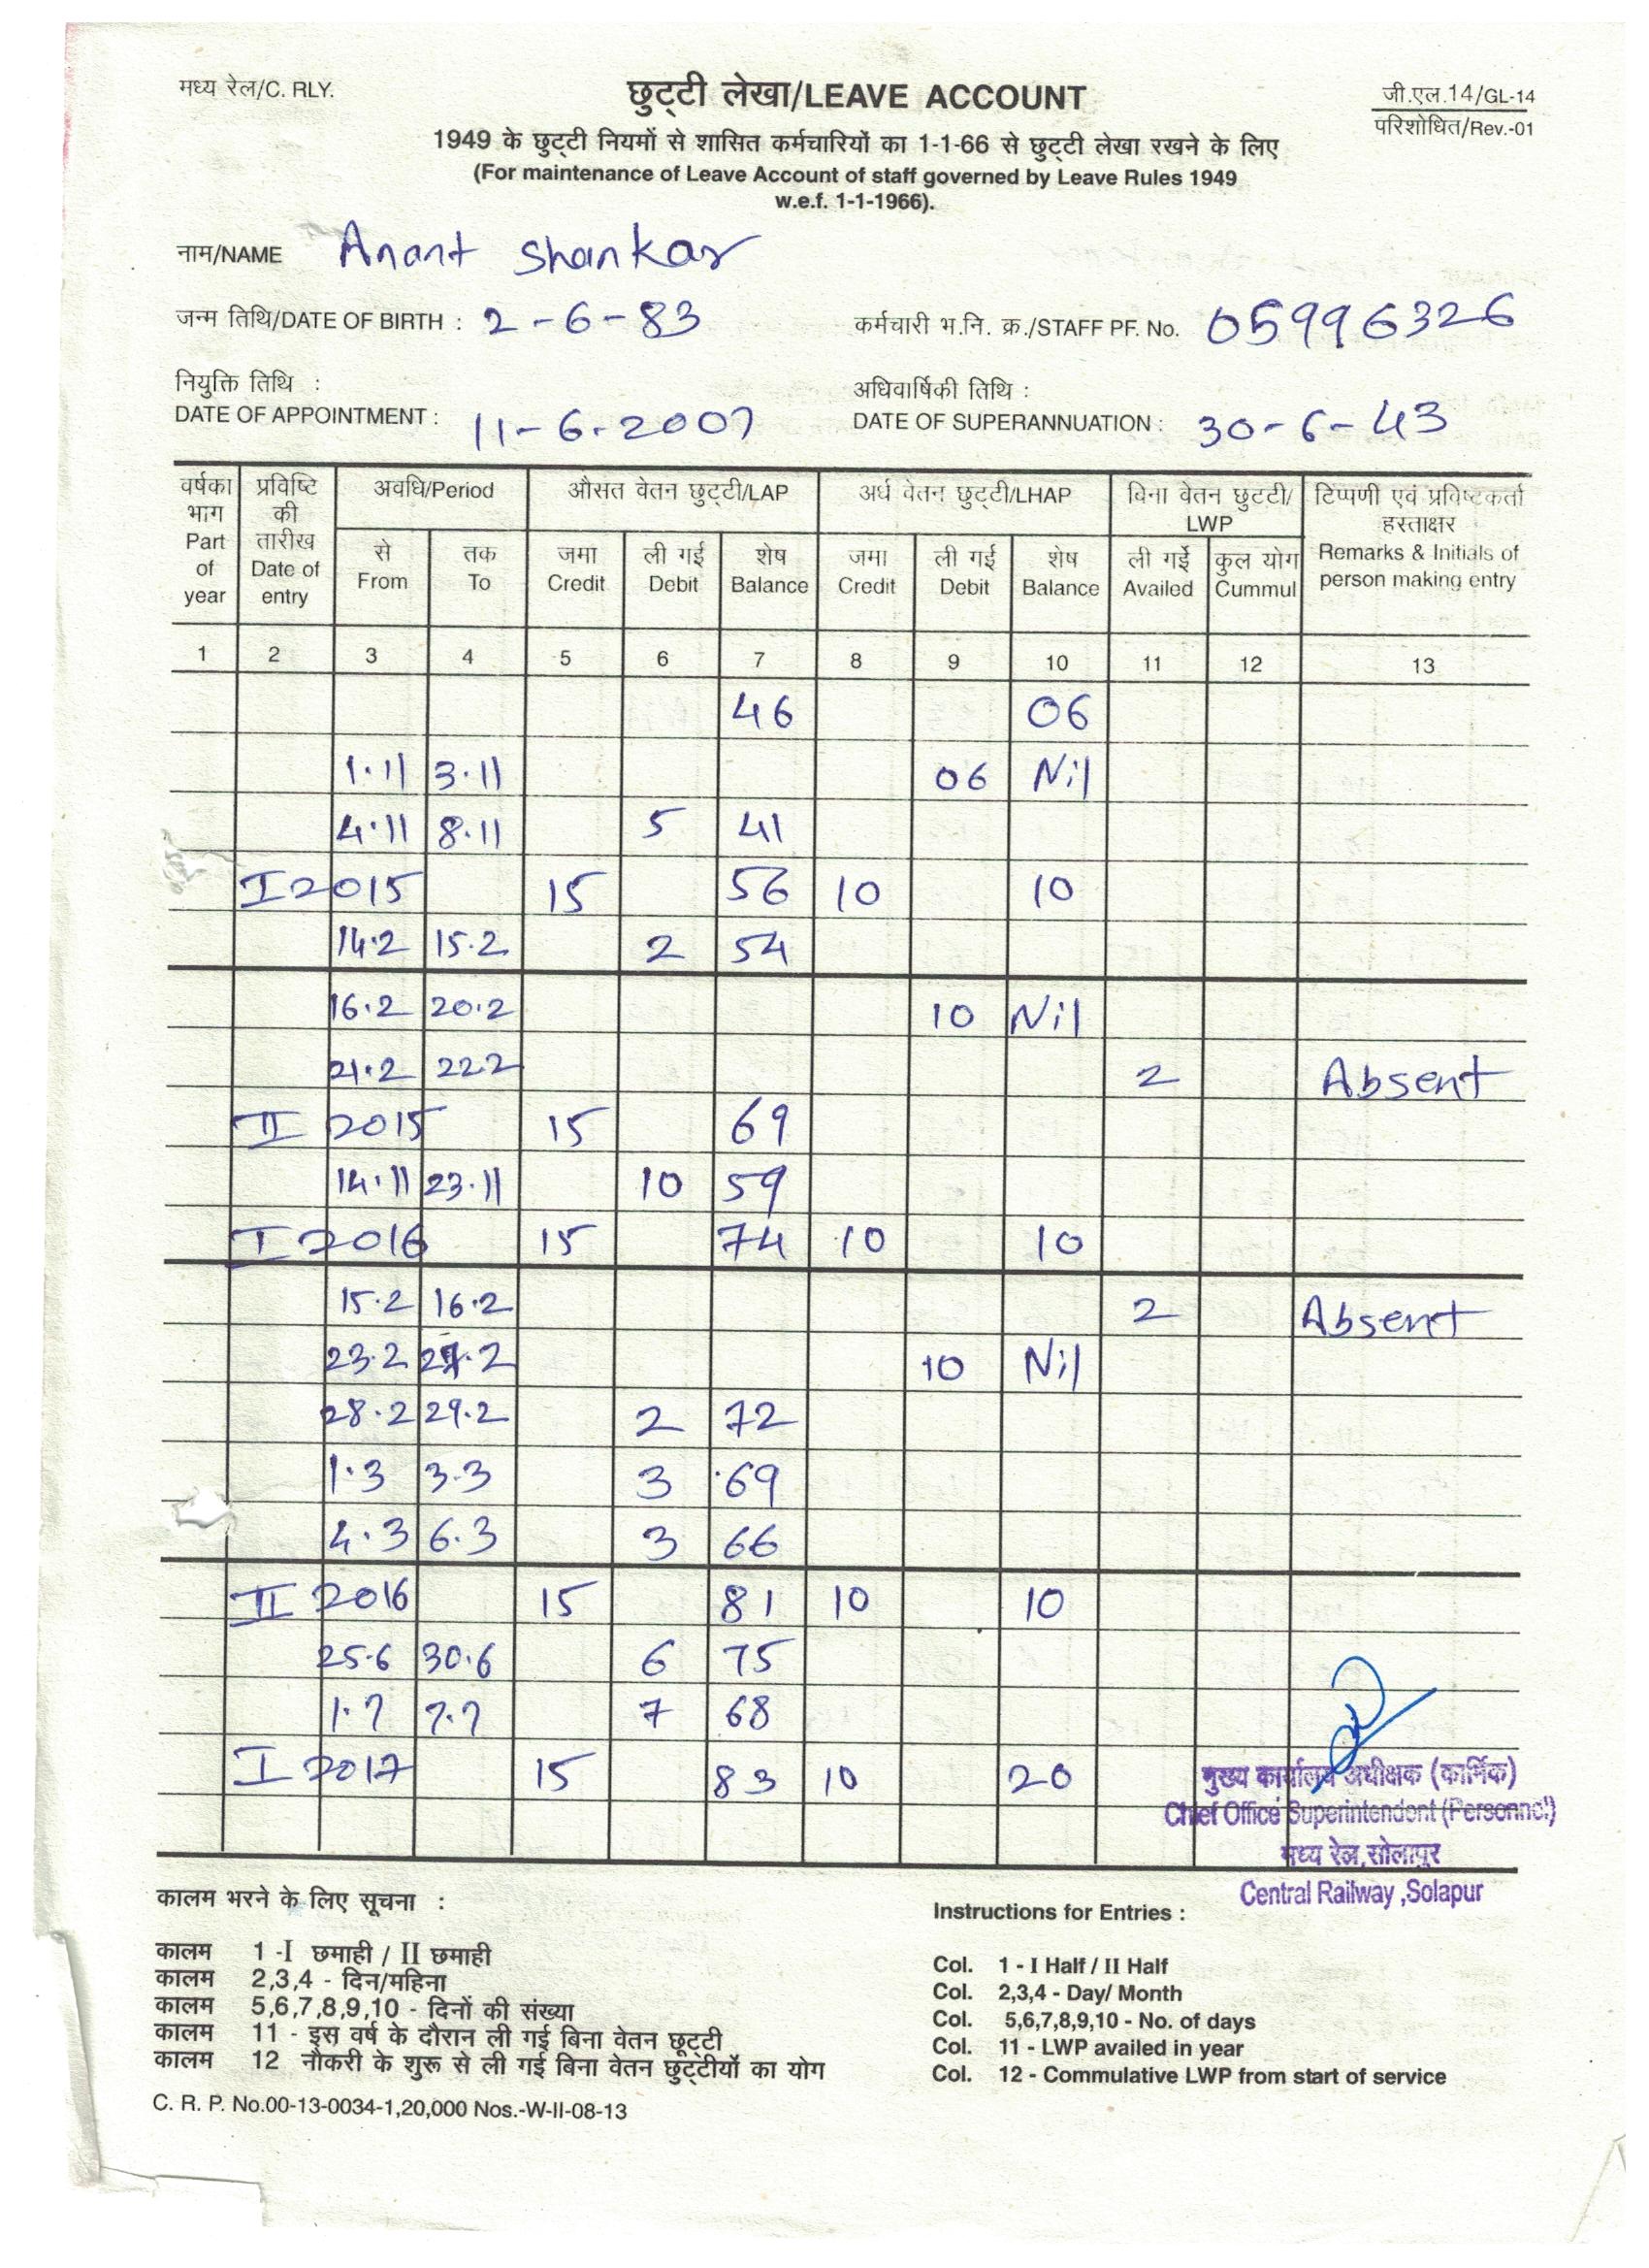 मध्य रेल/C. RLY.
छुट्टी लेखा/LEAVE ACCOUNT
जी.एल.14/GL-14
परिशोधित/Rev.-01
1949 के छुट्टी नियमों से शासित कर्मचारियों का 1-1-66 से छुट्टी लेखा रखने के लिए
(For maintenance of Leave Account of staff governed by Leave Rules 1949
w.e.f. 1-1-1966).
नाम/NAME Anant Shankar
जन्म तिथि/DATE OF BIRTH : 2-6-83 कर्मचारी भ.नि. क्र./STAFF PF. No. 05996326
नियुक्ति तिथि : अधिवार्षिकी तिथि :
DATE OF APPOINTMENT : 11-6-2007 DATE OF SUPERANNUATION : 30-6-43
वर्षका भाग Part of year प्रविष्टि की तारीख Date of entry अवधि/Period औसत वेतन छुट्टी/LAP अर्ध वेतन छुट्टी/LHAP बिना वेतन छुटटी/LWP टिप्पणी एवं प्रविष्टकर्ता हस्ताक्षर Remarks & Initials of person making entry
से From तक To जमा Credit ली गई Debit शेष Balance जमा Credit ली गई Debit शेष Balance ली गई Availed कुल योग Cummul
1 2 3 4 5 6 7 8 9 10 11 12 13
46 06
1.11 3.11 06 Nil
4.11 8.11 5 41
I 2015 15 56 10 10
14.2 15.2 2 54
16.2 20.2 10 Nil
21.2 22.2 2 Absent
II 2015 15 69
14.11 23.11 10 59
I 2016 15 74 10 10
15.2 16.2 2 Absent
23.2 27.2 10 Nil
28.2 29.2 2 72
1.3 3.3 3 69
4.3 6.3 3 66
II 2016 15 81 10 10
25.6 30.6 6 75
1.7 7.7 7 68
I 2017 15 83 10 20
मुख्य कार्यालय अधीक्षक (कार्मिक)
Chief Office Superintendent (Personnel)
मध्य रेल,सोलापुर
Central Railway ,Solapur
कालम भरने के लिए सूचना :
कालम 1 -I छमाही / II छमाही
कालम 2,3,4 - दिन/महिना
कालम 5,6,7,8,9,10 - दिनों की संख्या
कालम 11 - इस वर्ष के दौरान ली गई बिना वेतन छूट्टी
कालम 12 नौकरी के शुरू से ली गई बिना वेतन छुट्टीयों का योग
Instructions for Entries :
Col. 1 - I Half / II Half
Col. 2,3,4 - Day/ Month
Col. 5,6,7,8,9,10 - No. of days
Col. 11 - LWP availed in year
Col. 12 - Commulative LWP from start of service
C. R. P. No.00-13-0034-1,20,000 Nos.-W-II-08-13